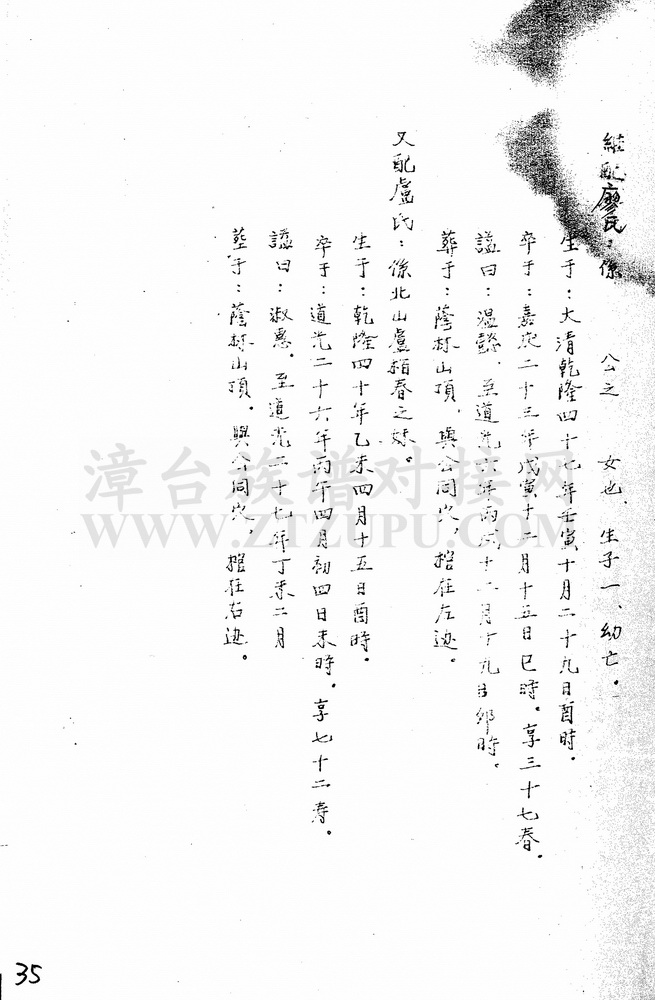 継配廖氏：係　　公之　　女也、生子一、幼亡。
生于：大清乾隆四十七年壬寅十月二十九日酉時．
卒于：嘉庆二十三年戊寅十二月十五日巳時。享三十七春．
謚曰：温懿、至道光六年丙戌十二月十九日卯時。
葬于：蔭林山頂．與公同穴，棺在左边。
又配盧氏：係北山盧栢春之妹。
生于：乾隆四十年乙未四月十五日酉時．
卒于：道光二十六年丙午四月初四日未時．享七十二寿．
謚曰：淑惠．至道光二十七年丁未二月
塟于：蔭林山頂．與公同穴，棺在右边。
漳台族谱对接网
WWW.ZTZUPU.COM
35